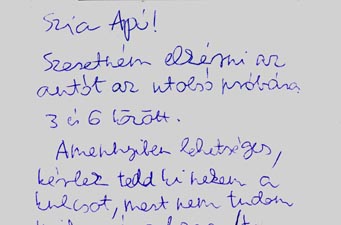 Szia Api!
Szeretném elkérni az
autót az utolsó próbára
3 és 6 között.
Amennyiben lehetséges,
kérlek tedd ki nekem a
kulcsot, mert nem tudom